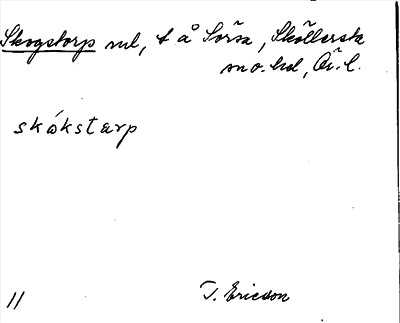 Skogstorp vvl, t å Sörsa, Sköllersta
sn o. hd, Ör. l.
skókstarp
T. Ericson
11